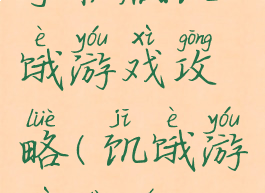 è yóu xì gōng
饿游戏攻
lüè jī è yóu
略(饥饿游